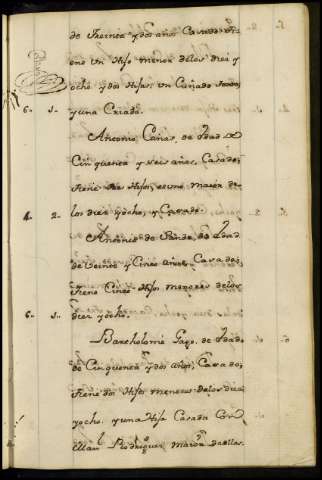 de treinta y dos años Casado tie
ene un Hijo menor de los diez y
ocho y dos Hijas. Un Cuñado
6- 1- y una Criada.
Antonio Cañas, de Edad de
Cinquenta y seis años, Casado;
tiene Hijos, es uno maior de
4. 2- los diez y ocho, y Casado.
Antonio de de Edad
de Veinte y Cinco años, Casado;
tiene Cinco Hijos menores de los
6- 1- diez y ocho.
Bartholome Gago, de Edad
de Cinquenta y dos años, Casado;
tiene dos Hijos menores de los diez
y ocho, y una Hija Casada Con
Man.l Rodriguez, maior de ellos.